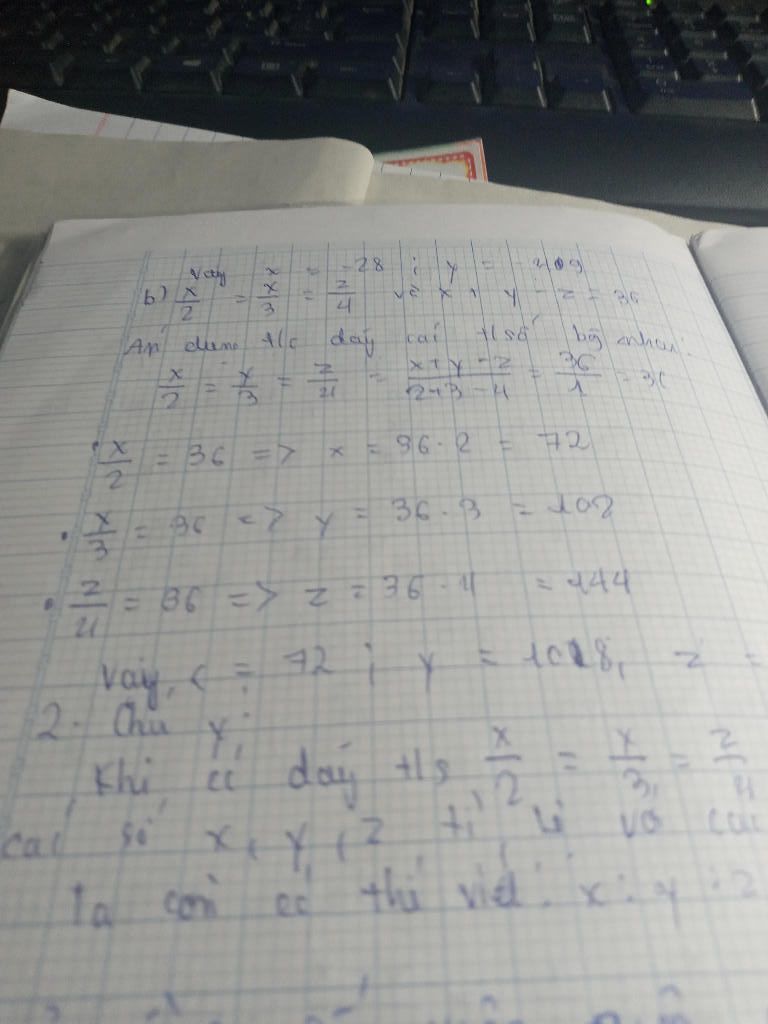 vậy x = -28 ; y =
b) x/2 = x/3 = z/4 và x + y - z = 36
dụng t/c dãy các tỉ số bằng nhau:
x/2 = y/3 = z/4 = x+y-z/2+3-4 = 36/1 = 36
• x/2 = 36 => x = 36 . 2 = 72
• y/3 = 36 => y = 36 . 3 = 108
• z/4 = 36 => z = 36 . 4 = 144
Vậy x = 72 ; y = 108, z =
2. Chú ý:
Khi có dãy tỉ số x/2 = y/3 = z/4
các số x, y, z tỉ lệ với các
Ta còn có thể viết: x : y : z